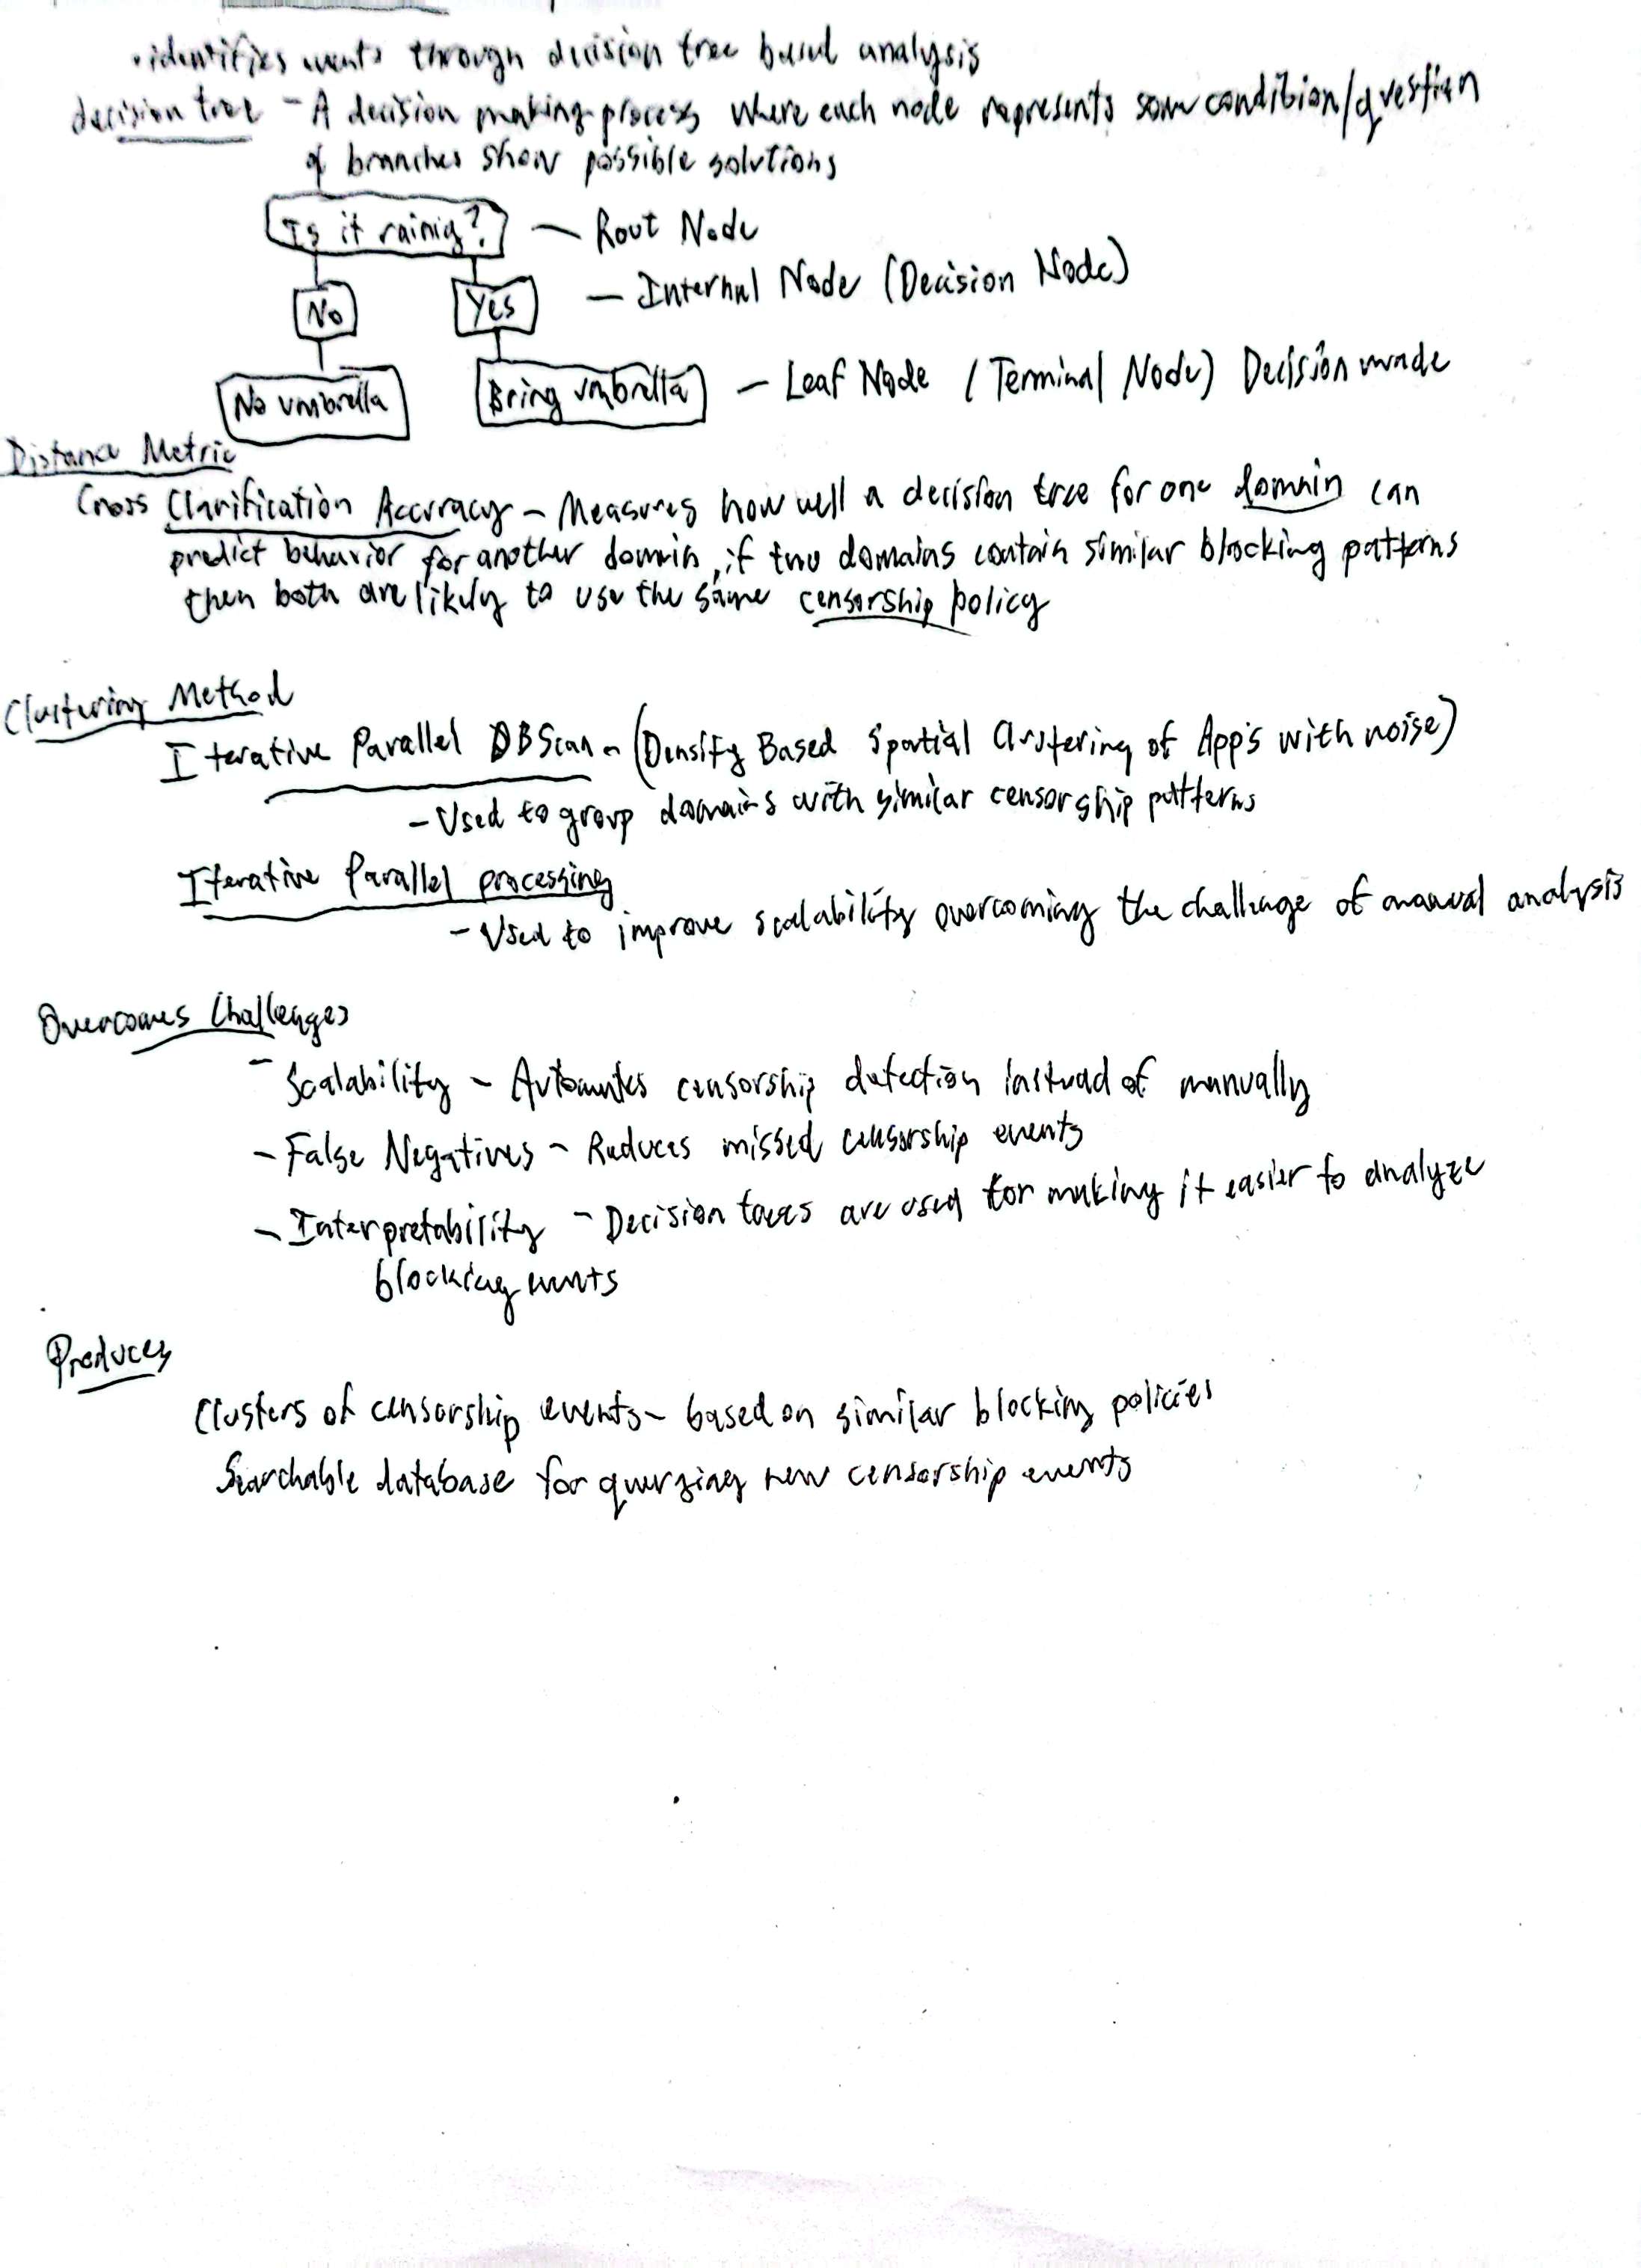 • identifies events through decision tree based analysis
decision tree - A decision making process where each node represents some condition/question
& branches show possible solutions
Is it rainig? — Rout Node
No Yes — Internal Node (Decision Node)
No umbrella Bring umbrella — Leaf Node (Terminal Node) Decision made
Distance Metric
Cross Clarification Accuracy - Measures how well a decision tree for one domain can
predict behavior for another domain, if two domains contain similar blocking patterns
then both are likely to use the same censorship policy
Clustering Method
Iterative Parallel DBScan - (Density Based Spatial Clustering of App's with noise)
- Used to group domains with similar censorship patterns
Iterative Parallel processing
- Used to improve scalability overcoming the challenge of manual analysis
Overcomes Challenges
- Scalability - Automates censorship detection instead of manually
- False Negatives - Reduces missed censorship events
- Interpretability - Decision trees are used for making it easier to analyze
blocking events
Produces
Clusters of censorship events - based on similar blocking policies
Searchable database for querying new censorship events